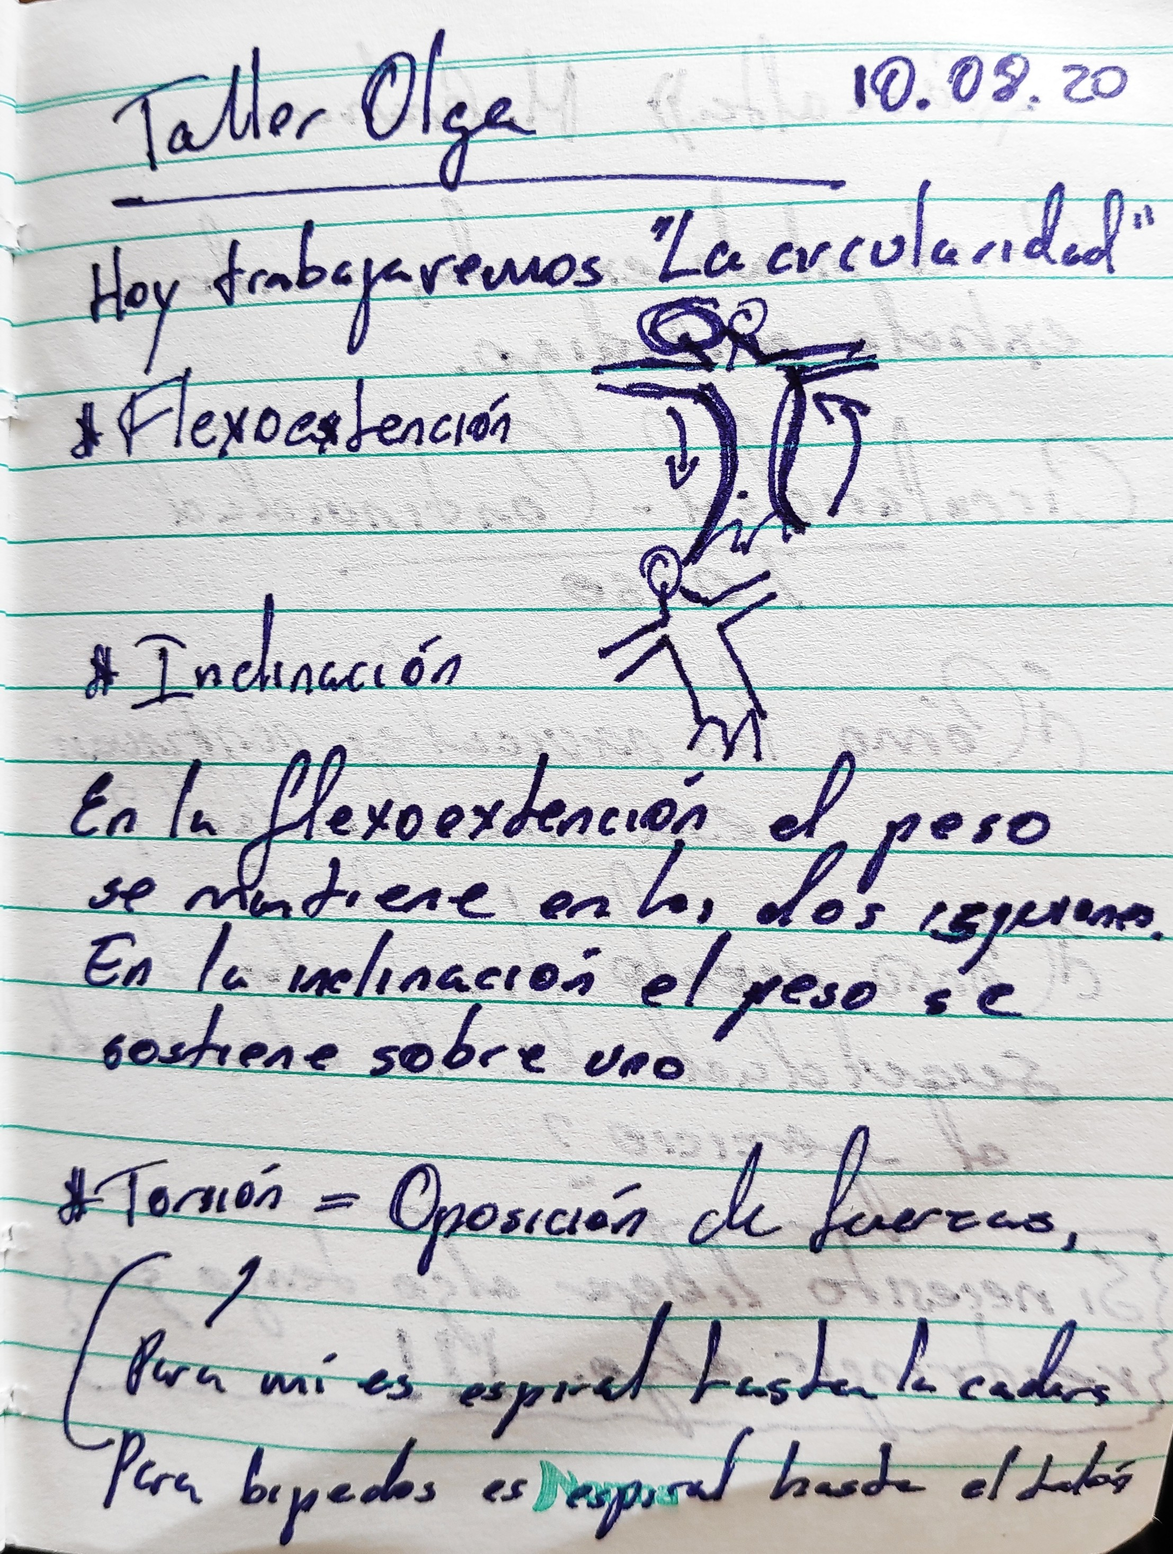 Taller Olga 10.08.20
Hoy trabajaremos "La circularidad"
# Flexoextención
# Inclinación
En la flexoextención el peso
se mantiene en los dos isquiones.
En la inclinación el peso se
sostiene sobre uno
# Torsión = Oposición de fuerzas,
Para mi es espiral hasta la cadera
Para bipedos es espiral hasta el talón